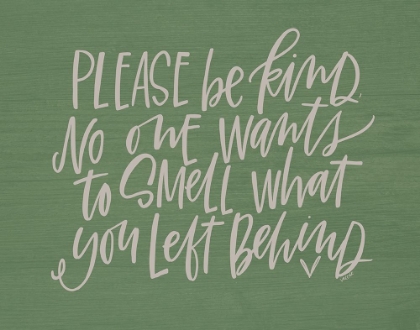 PLEASE be kind,
No one wants
to SMELL what
you Left Behind